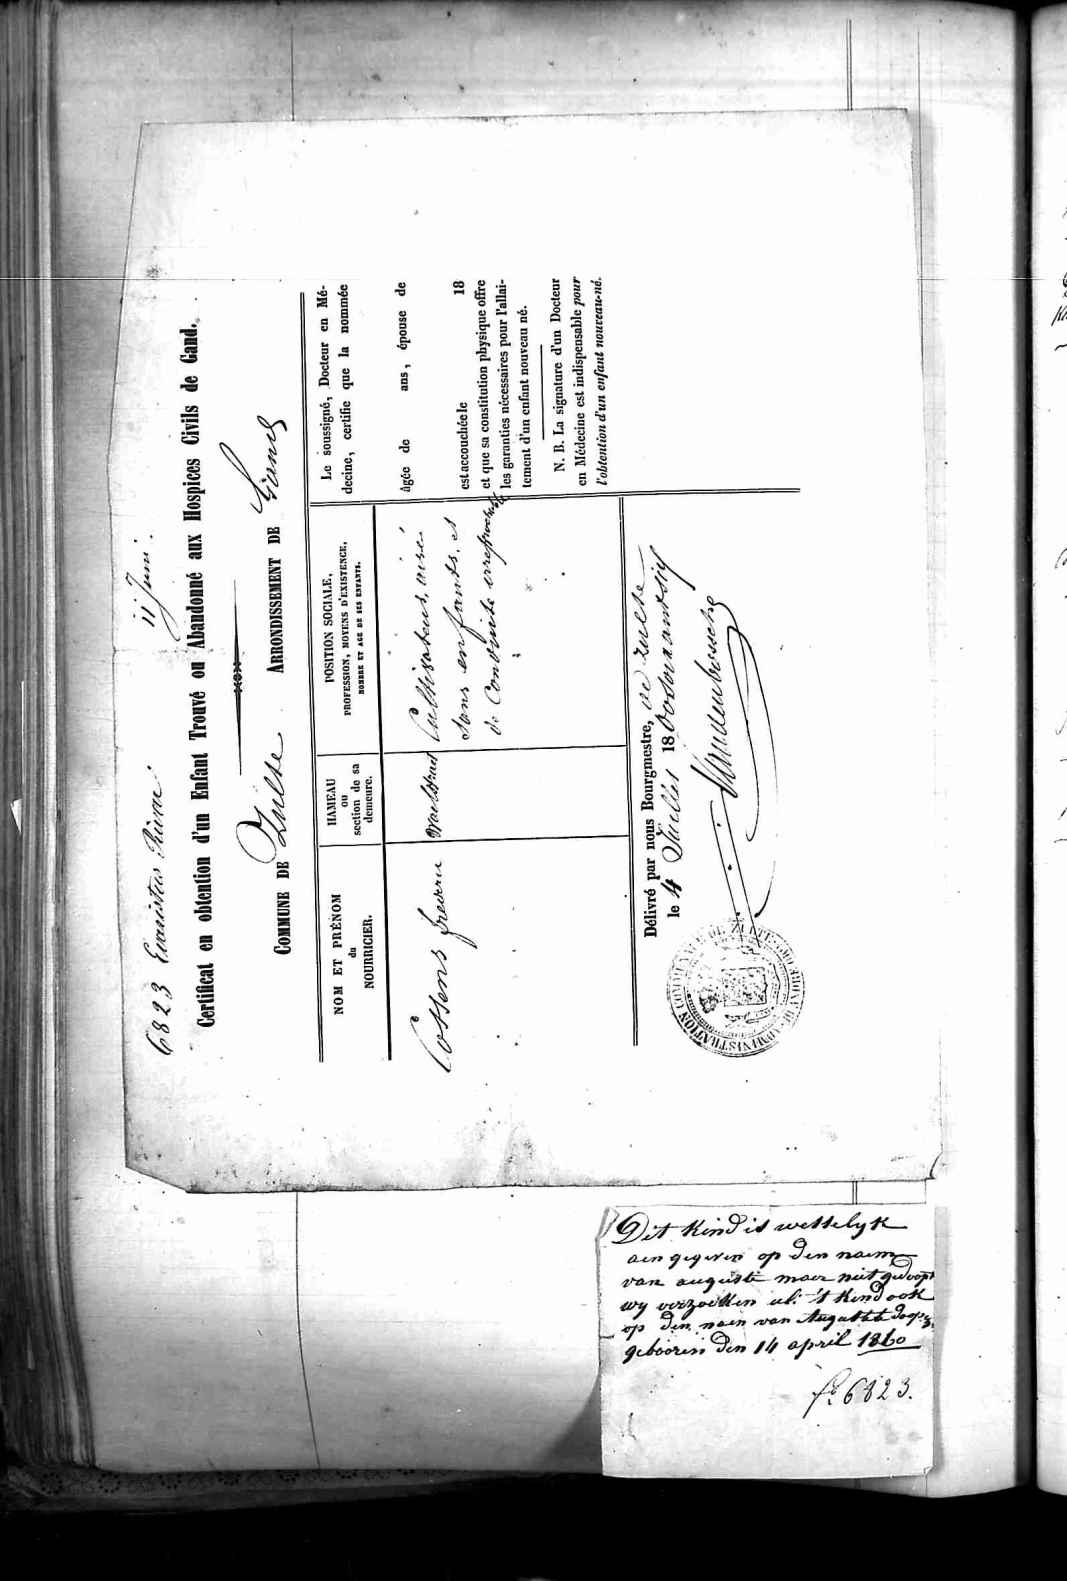 6823 Evaristus Pierre. 11 Juni.
Certificat en obtention d'un Enfant Trouvé ou Abandonné aux Hospices Civils de Gand.
COMMUNE DE Zulte ARRONDISSEMENT DE Gand
NOM ET PRÉNOM
du
NOURRICIER.
HAMEAU
ou
section de sa
demeure.
POSITION SOCIALE,
PROFESSION, MOYENS D'EXISTENCE,
NOMBRE ET AGE DE SES ENFANTS.
Cossens
Cultivateur, aisé
sans enfants, et
de Conduite irreprochable
Le soussigné, Docteur en Mé-
decine, certifie que la nommée
âgée de ans, épouse de
est accouchée le 18
et que sa constitution physique offre
les garanties nécessaires pour l'allai-
tement d'un enfant nouveau né.
N. B. La signature d'un Docteur
en Médecine est indispensable pour
l'obtention d'un enfant nouveau-né.
Délivré par nous Bourgmestre, de Zulte
le 4 Juillet 18
ADMINISTRATION COMMUNALE DE ZULTE
Dit kind is wettelyk
aengegeven op den naem
van auguste maer niet gedoopt
wy verzoeken ul: 't kind ook
op den naem van Auguste
gebooren den 14 april 1860
6823.